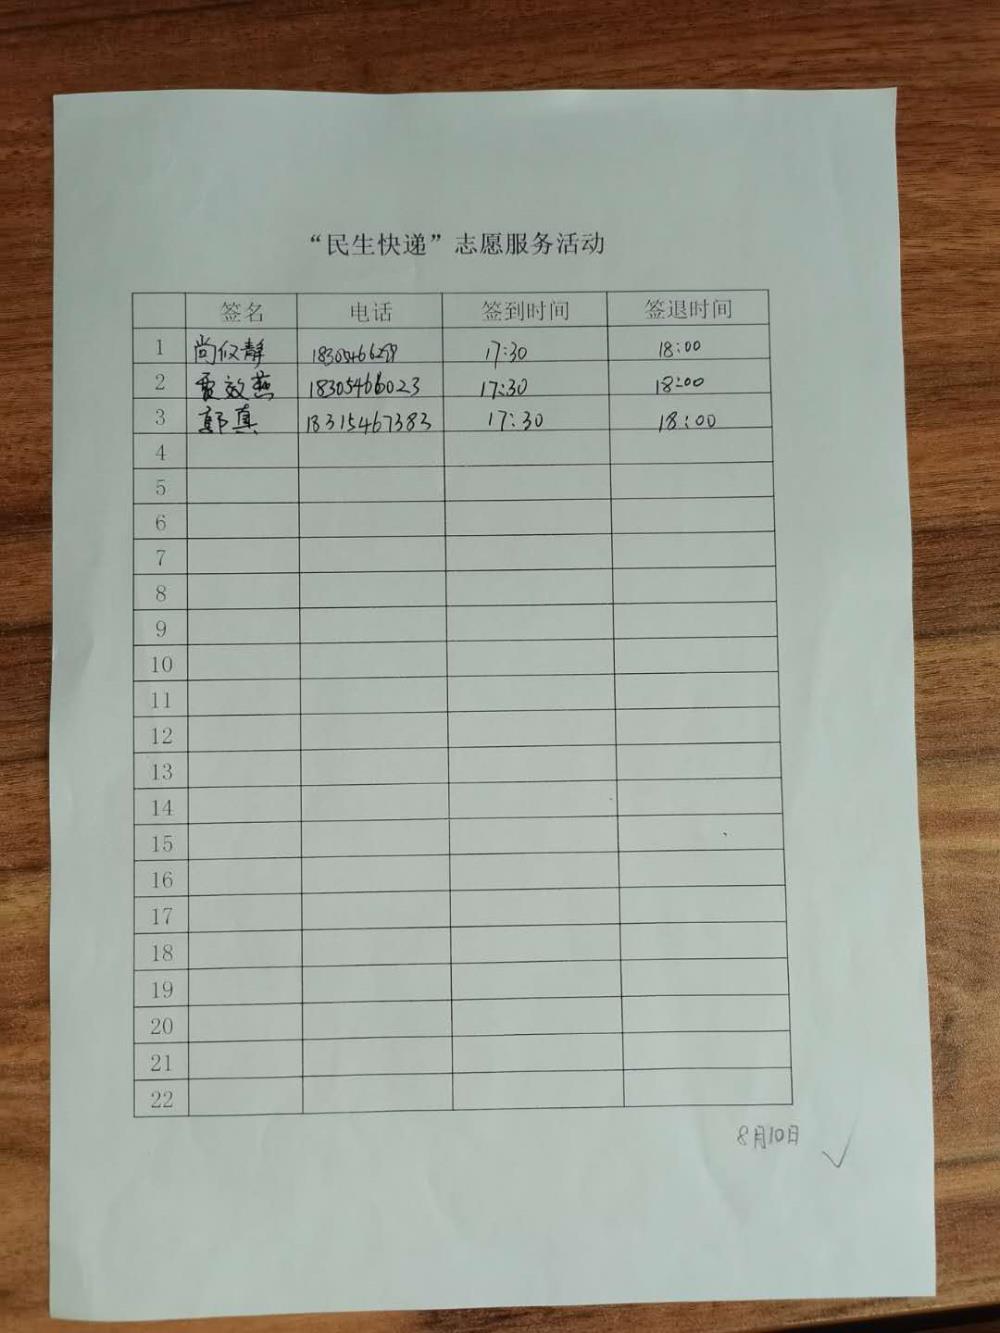 “民生快递”志愿服务活动
签名 电话 签到时间 签退时间
1 尚仪静 17:30 18:00
2 效燕 18305466023 17:30 18:00
3 郭真 18315467383 17:30 18:00
4
5
6
7
8
9
10
11
12
13
14
15
16
17
18
19
20
21
22
8月10日